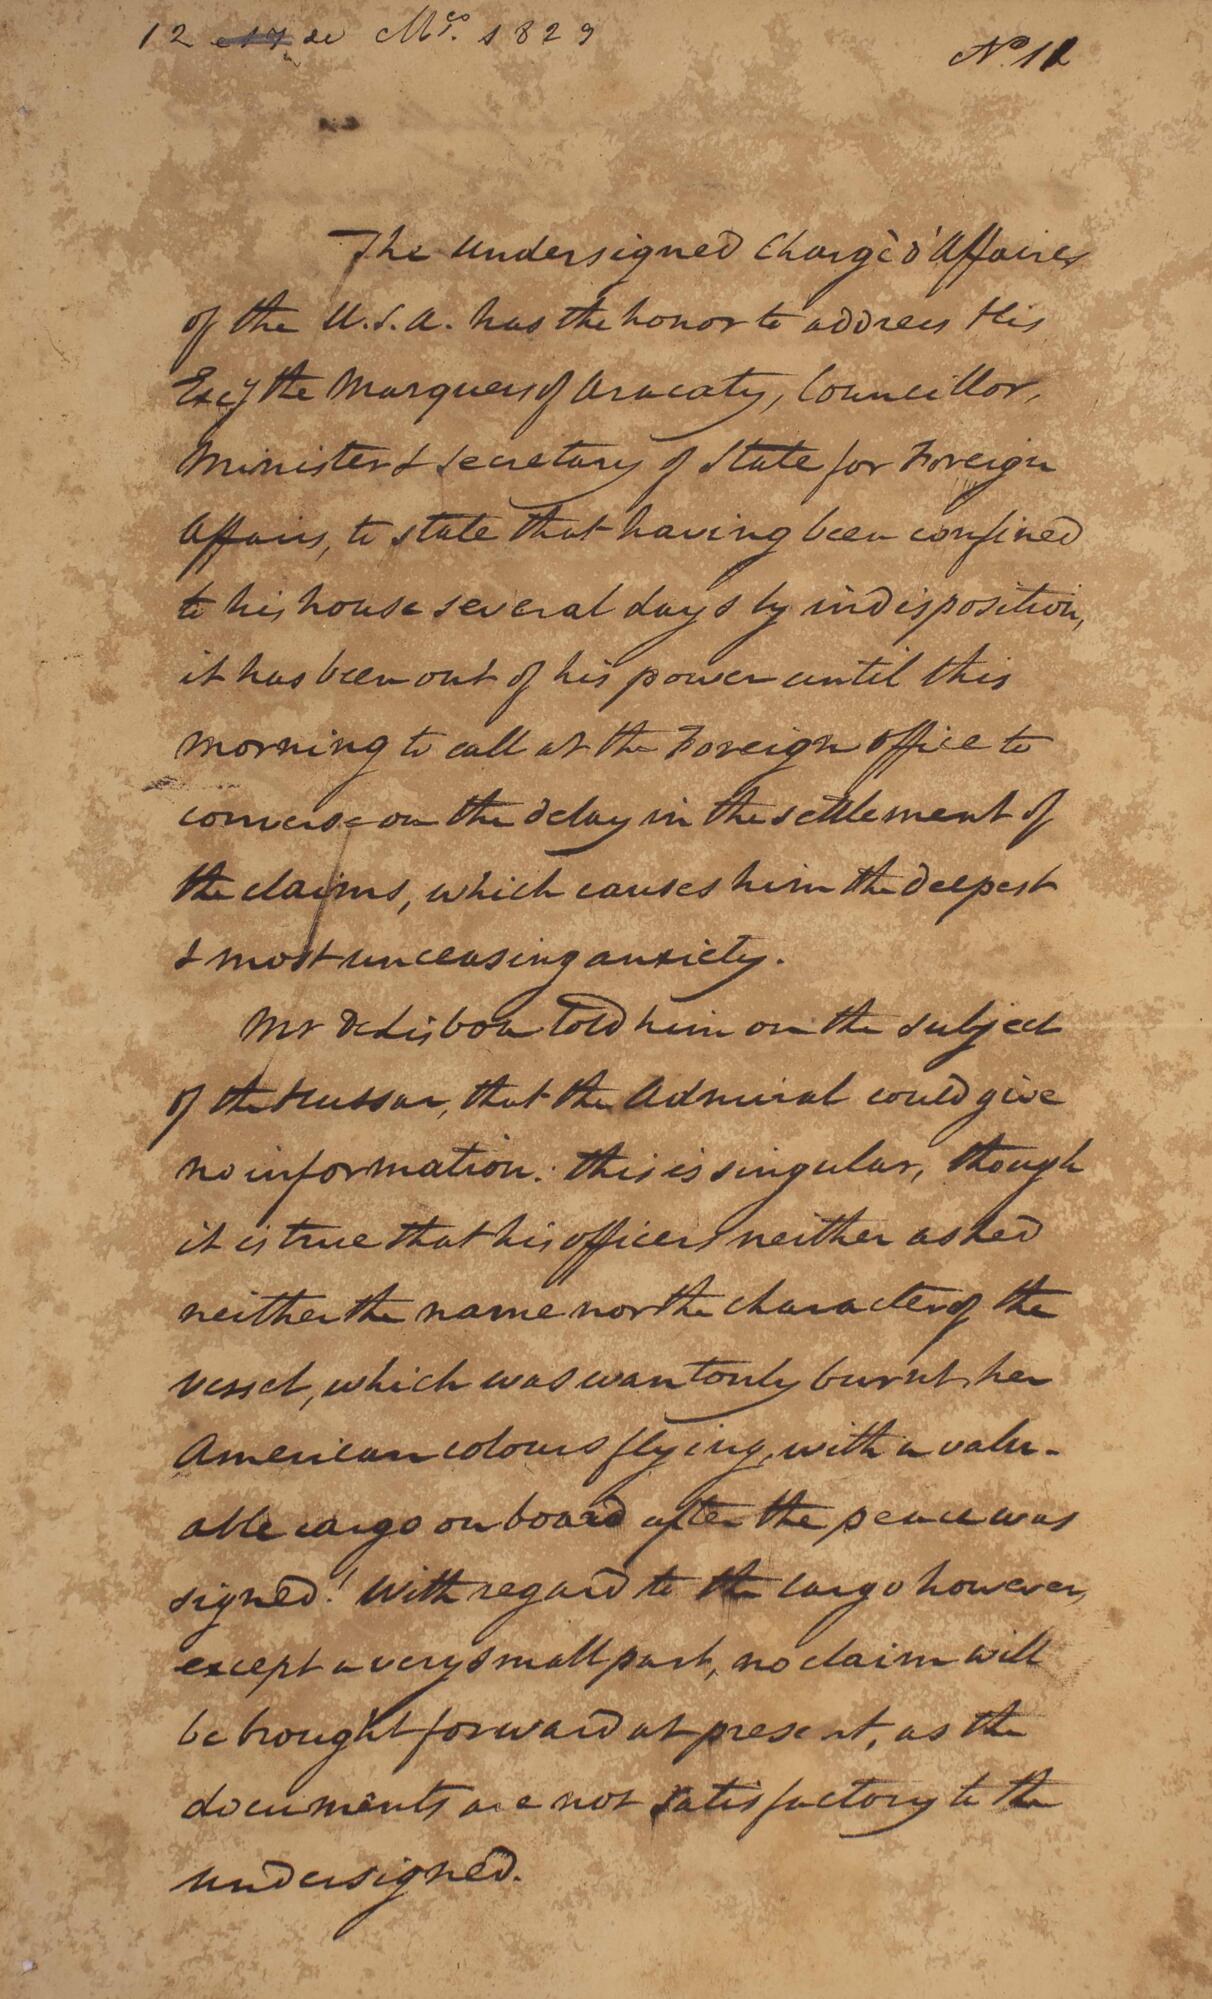 12 de Mço. 1829
No. 12
The Undersigned Chargè d'Affaires
of the U.S.A. has the honor to address His
Excy the Marquess of Aracaty, Councillor,
Minister & Secretary of State for Foreign
Affairs, to state that having been confined
to his house several days by indisposition,
it has been out of his power until this
morning to call at the Foreign office to
converse on the delay in the settlement of
the claims, which causes him the deepest
& most unceasing anxiety.
Mr De Lisboa told him on the subject
of the Hussar, that the Admiral could give
no information: this is singular, though
it is true that his officers neither asked
neither the name nor the character of the
vessel, which was wantonly burnt, her
American colours flying, with a valu-
able cargo on board after the peace was
signed! With regard to the cargo however,
except a very small part, no claim will
be brought forward at present, as the
documents are not satisfactory to the
undersigned.